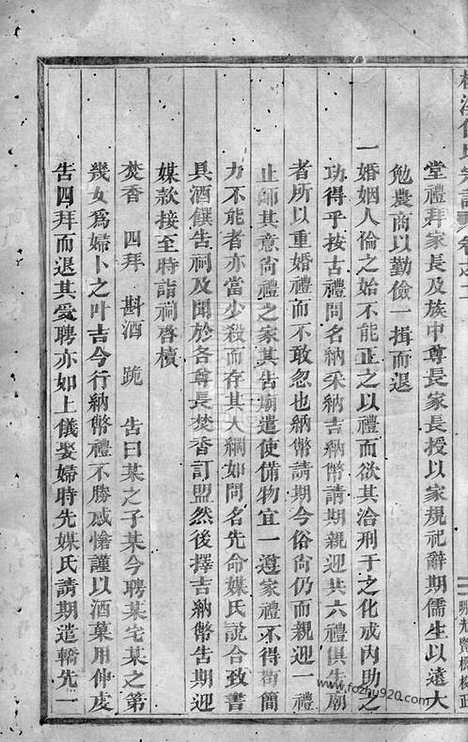 堂禮拜家長及族中尊長家長授以家規祀辭期儒生以遠大
勉農商以勤儉一揖而退
一婚姻人倫之始不能正之以禮而欲其洽刑于之化成內助之
功得乎按古禮問名納采納吉納幣請期親迎共六禮俱告廟
者所以重婚禮而不敢忽也納幣請期今俗尙仍而親迎一禮
止師其意尙禮之家其告廟遣使備物宜一遵家禮不得簡
力不能者亦當少殺而存其大綱如問名先命媒氏說合致書
具酒饌告祠及聞於各尊長焚香訂盟然後擇吉納幣告期迎
媒款接至時詣祠啓櫝
焚香 四拜 斟酒 跪 告曰某之子某今聘某宅某之第
幾女爲婦卜之叶吉今行納幣禮不勝感愴謹以酒菓用伸虔
告四拜而退其爰聘亦如上儀娶婦時先媒氏請期遣轎先一
www.fozhu920.com